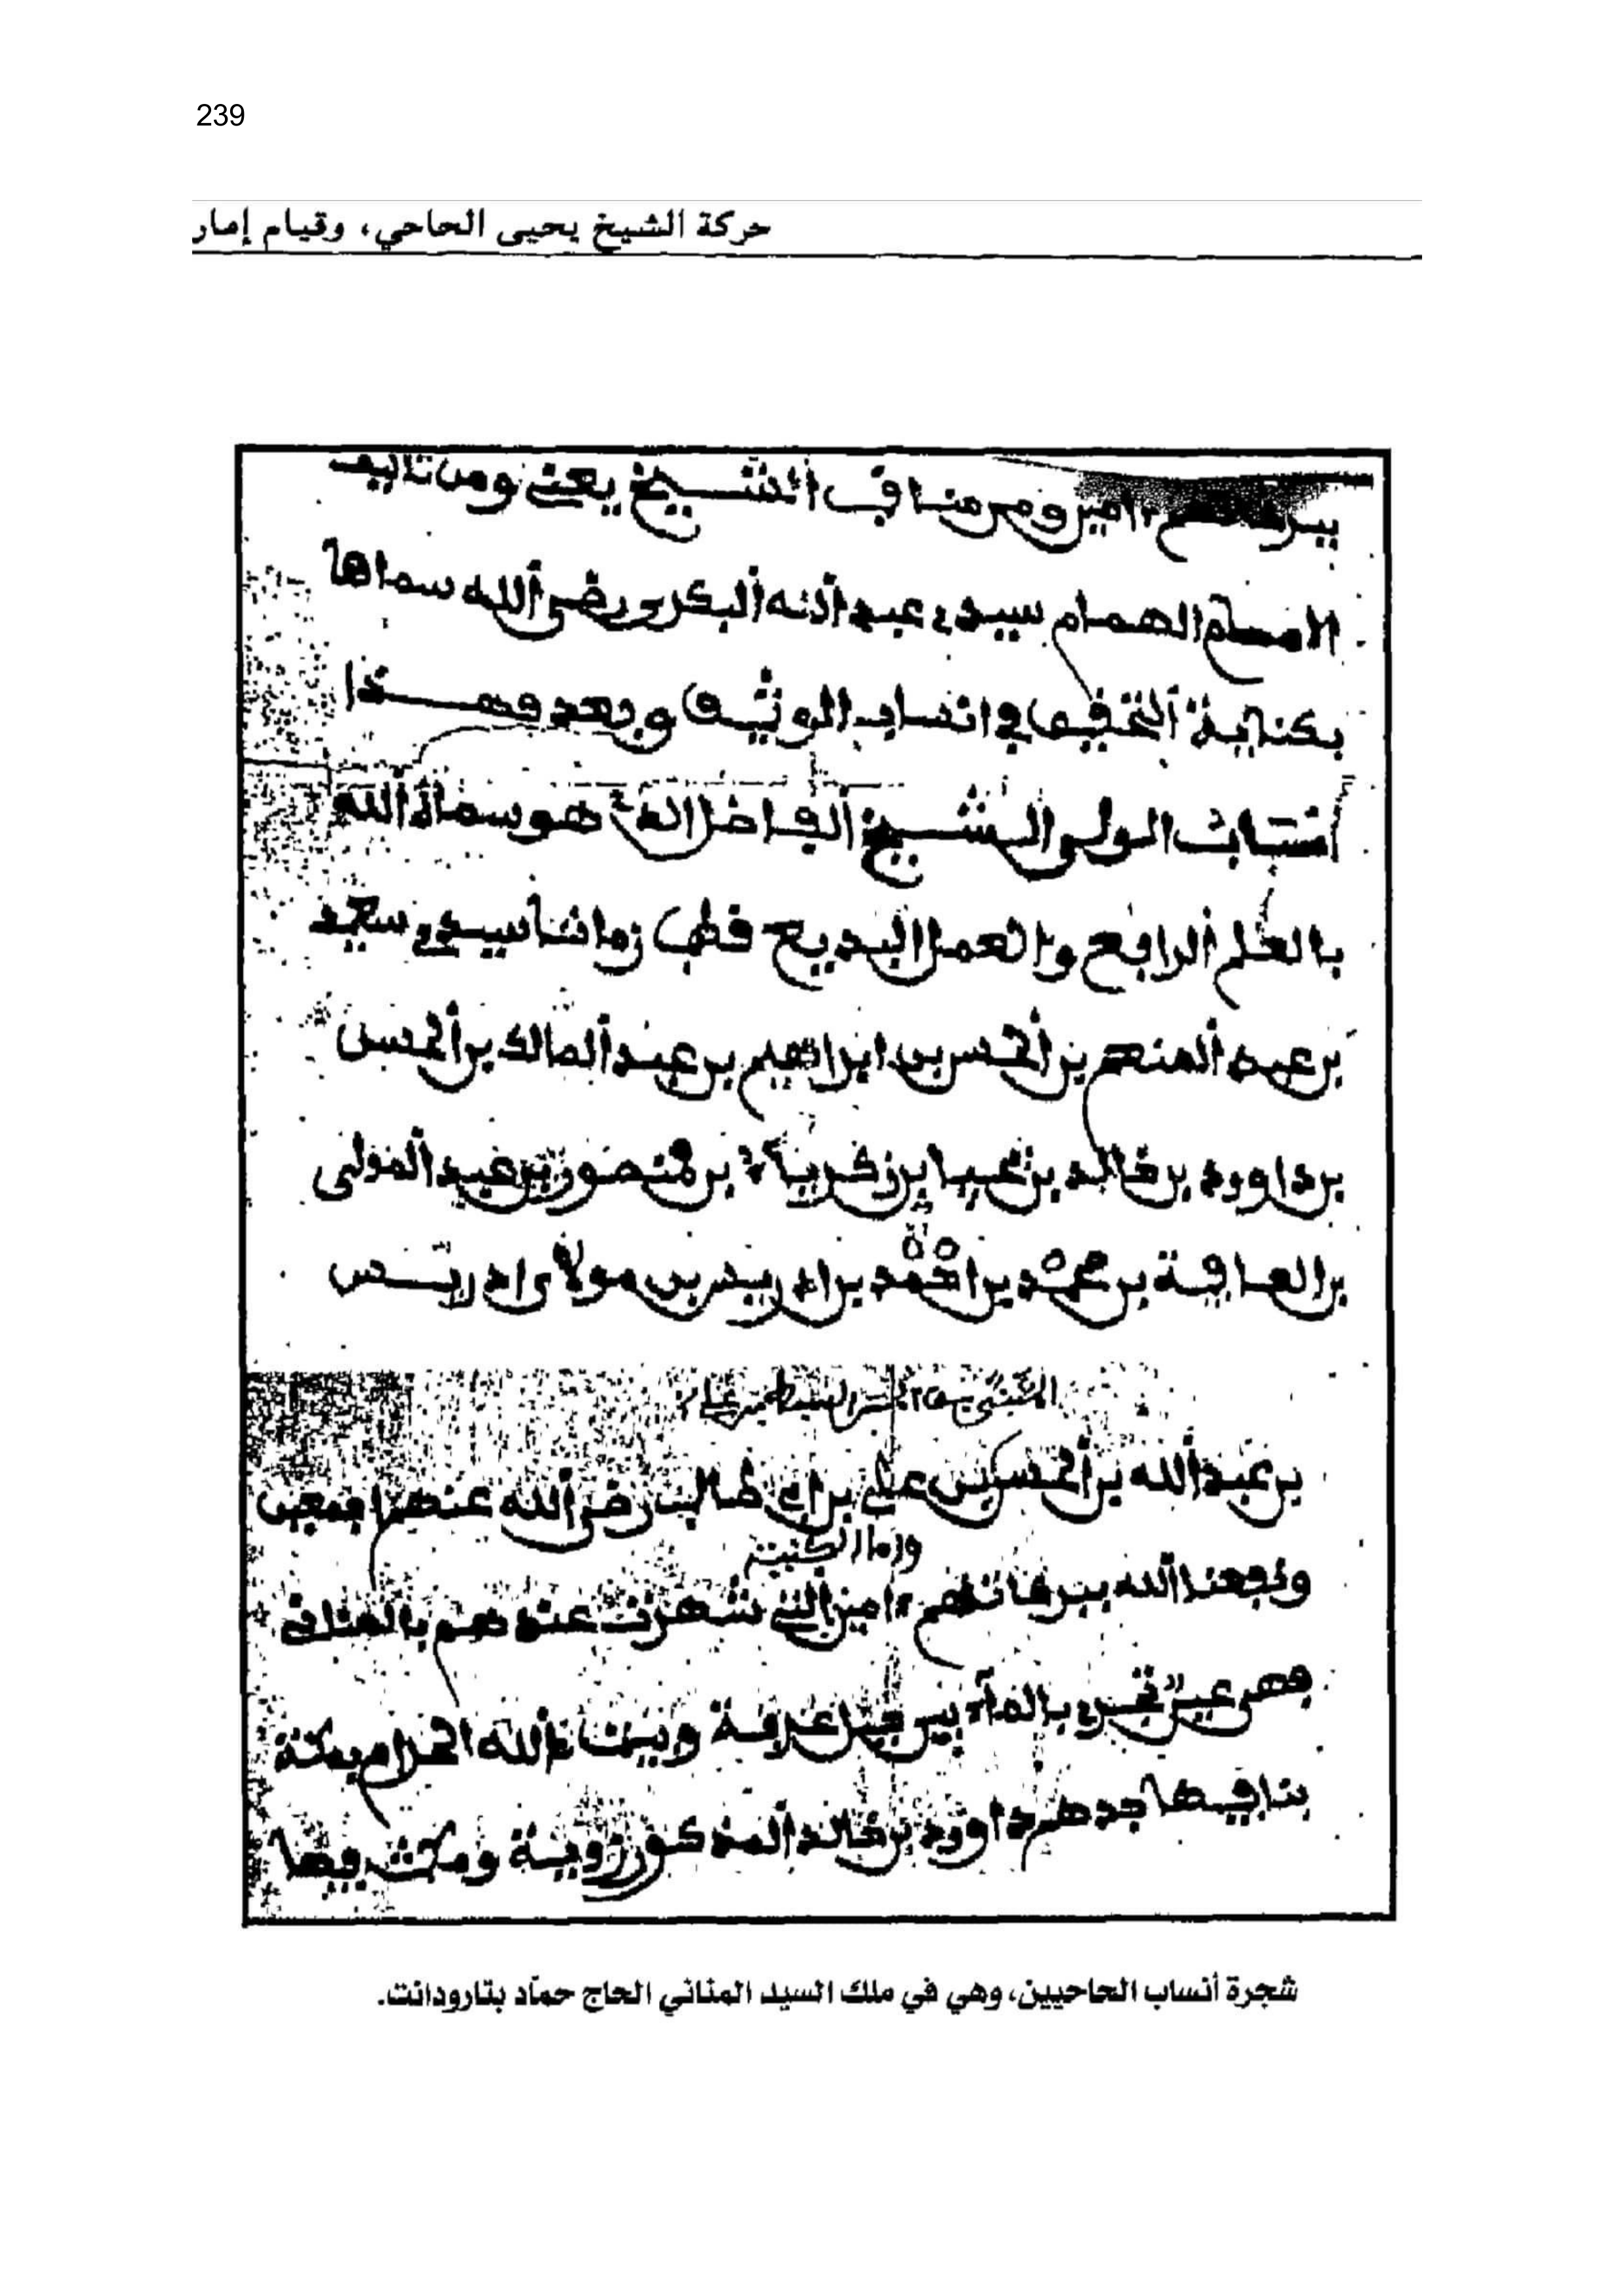 239
حركة الشيخ يحيى الحاحي، وقيام إمار
امين ومن مناقب الشيخ يحيى ومن تاليف
الامام الهمام سيدي عبد الله البكري رضي الله سماها
بكتابة التحقيق في انساب الوثيق وبعد فهذا
انتساب الولي الشيخ الفاضل الذي هو سماه الله
بالعلم الرافع والعمل البديع قطب زماننا سيدي سعيد
بن عبد المنعم بن الحسن بن ابراهيم بن عبد المالك بن الحسن
بن داوود بن خالد بن يحيا بن زكرياء بن منصور بن عبد المولى
بن العافية بن محمد بن احمد بن ادريس بن مولاي ادريس
بن عبد الله بن الحسن بن علي بن ابي طالب رضي الله عنهم اجمعين
واما الكنية
ونفعنا الله ببركاتهم ءامين التي شهرت عند هم بالمناني
فهي عين تجري بالماء بين جبل عرفة وبيت الله الحرام بمكة
بنا فيها جدهم داوود بن خالد المذكور زوية ومكث فيها
شجرة أنساب الحاحيين، وهي في ملك السيد المناني الحاج حمّاد بتارودانت.